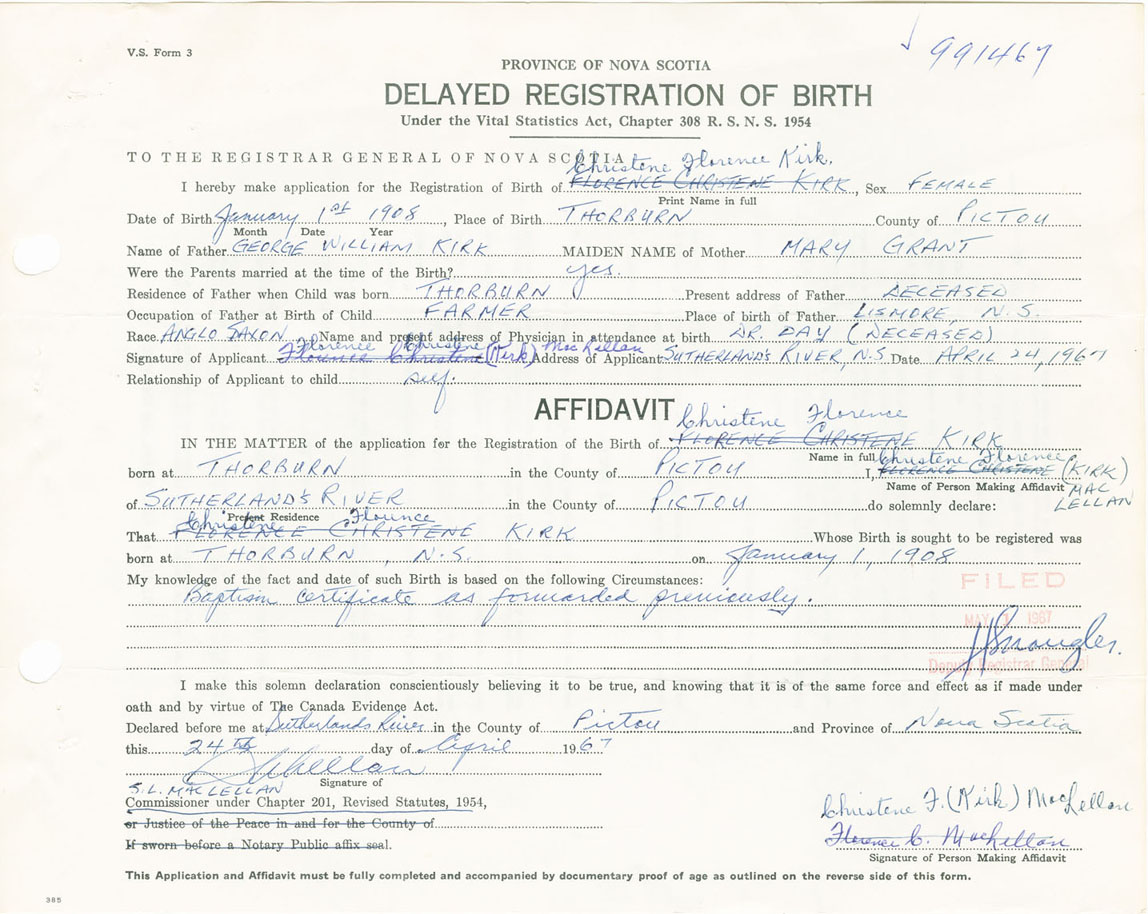 991467
V.S. Form 3
PROVINCE OF NOVA SCOTIA
DELAYED REGISTRATION OF BIRTH
Under the Vital Statistics Act, Chapter 308 R. S. N. S. 1954
TO THE REGISTRAR GENERAL OF NOVA SCOTIA
Christene Florence Kirk.
I hereby make application for the Registration of Birth of FLORENCE CHRISTENE KIRK, Sex FEMALE
Print Name in full
Date of Birth January 1st 1908, Place of Birth THORBURN County of PICTOU
Month Date Year
Name of Father GEORGE WILLIAM KIRK MAIDEN NAME of Mother MARY GRANT
Were the Parents married at the time of the Birth? yes.
Residence of Father when Child was born THORBURN Present address of Father DECEASED
Occupation of Father at Birth of Child FARMER Place of birth of Father LISMORE, N.S.
Race ANGLO SAXON Name and present address of Physician in attendance at birth DR. DAY (DECEASED)
Florence Christene MacLellan
Signature of Applicant Florence Christene (Kirk) Address of Applicant SUTHERLAND'S RIVER, N.S. Date APRIL 24, 1967
Relationship of Applicant to child self.
AFFIDAVIT
Christene Florence
IN THE MATTER of the application for the Registration of the Birth of FLORENCE CHRISTENE KIRK
Name in full Christene Florence
born at THORBURN in the County of PICTOU I, FLORENCE CHRISTENE (KIRK)
Name of Person Making Affidavit MAC LELLAN
of SUTHERLAND'S RIVER in the County of PICTOU do solemnly declare:
Present Residence
Christene Florence
That FLORENCE CHRISTENE KIRK Whose Birth is sought to be registered was
born at THORBURN, N.S. on January 1, 1908
My knowledge of the fact and date of such Birth is based on the following Circumstances:
FILED
Baptism certificate as forwarded previously.
MAY 1967
Deputy Registrar General
I make this solemn declaration conscientiously believing it to be true, and knowing that it is of the same force and effect as if made under
oath and by virtue of The Canada Evidence Act.
Declared before me at Sutherlands River in the County of Pictou and Province of Nova Scotia
this 24th day of April 1967
Signature of
S.L. MACLELLAN
Commissioner under Chapter 201, Revised Statutes, 1954,
or Justice of the Peace in and for the County of
If sworn before a Notary Public affix seal.
Christene F. (Kirk) MacLellan
Florence C. MacLellan
Signature of Person Making Affidavit
This Application and Affidavit must be fully completed and accompanied by documentary proof of age as outlined on the reverse side of this form.
385